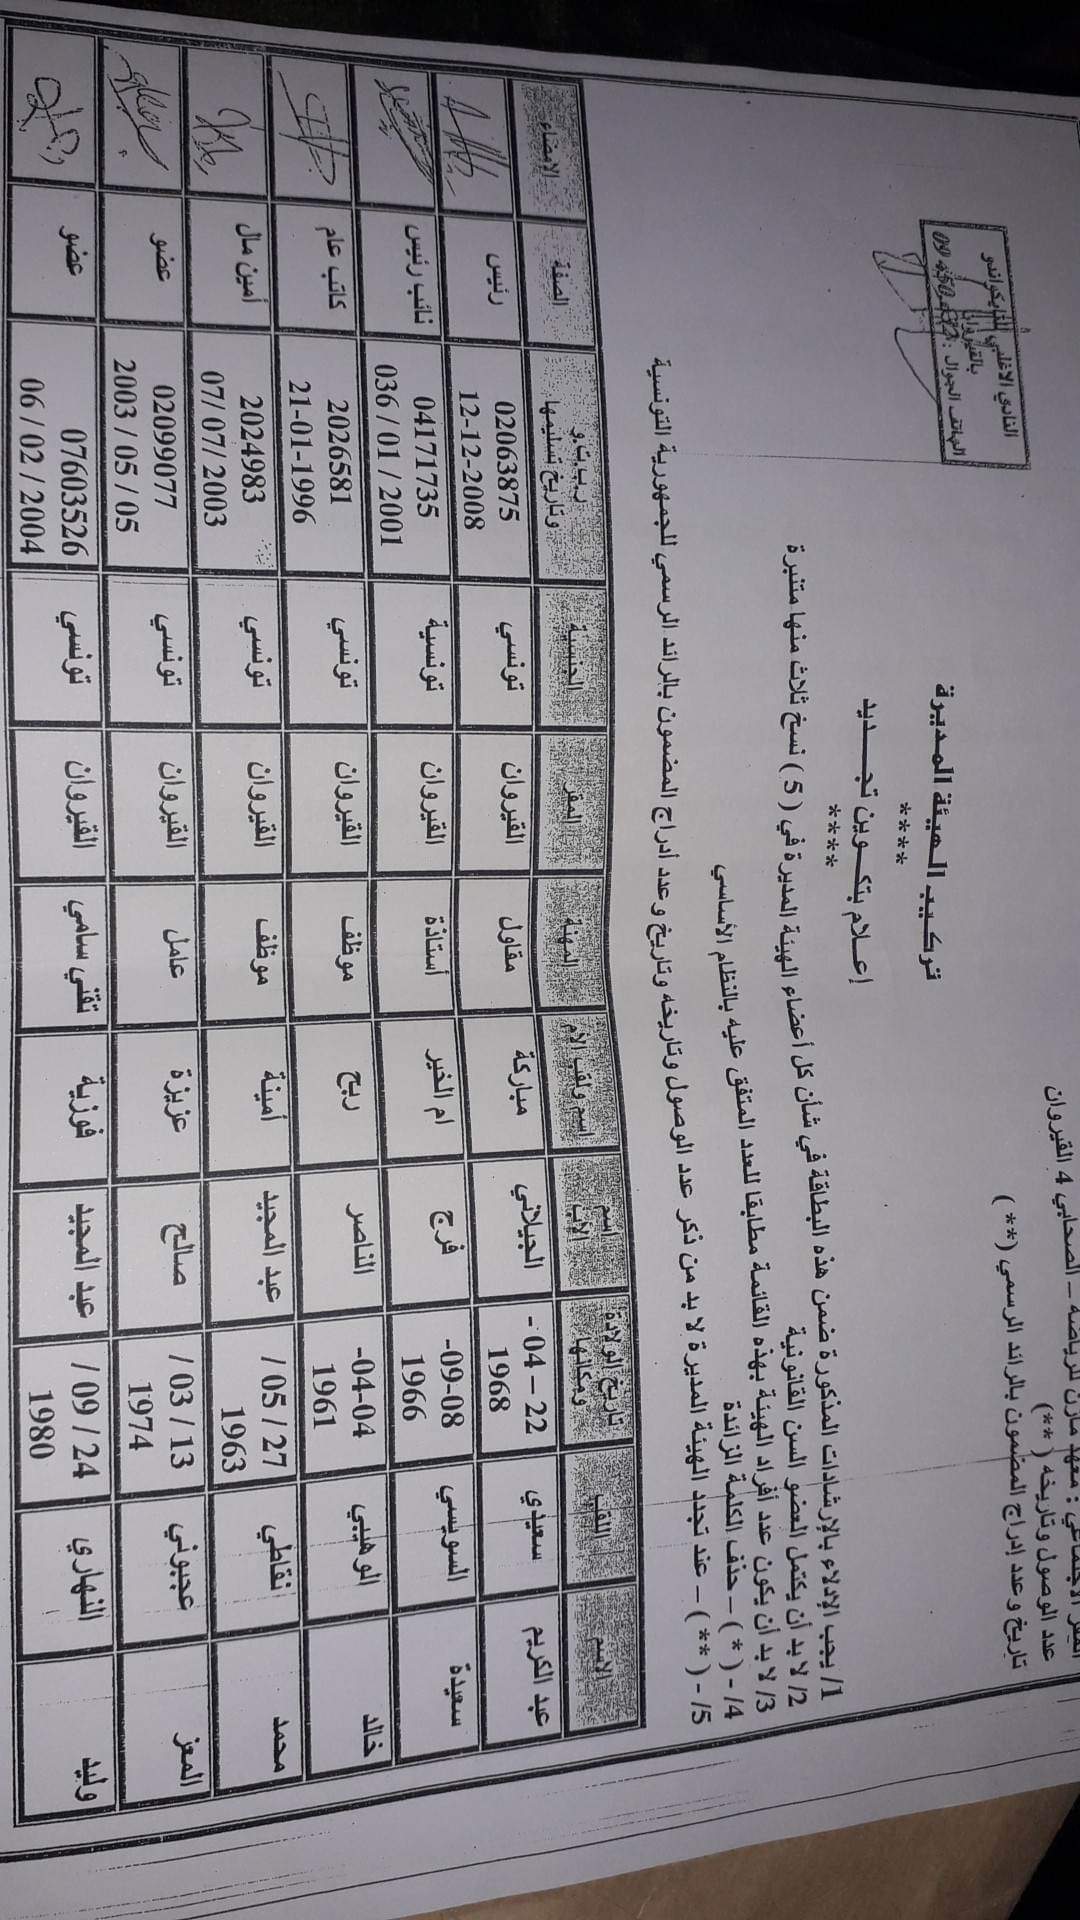 معهد مارن للرياضة – الصحابي 4 القيروان
عدد الوصول وتاريخه (**)
تاريخ وعدد إدراج المضمون بالرائد الرسمي (**)
النادي الاغلبي للتايكواندو
بالقيروان
الهاتف الجوال :
تركـيب الـهيئة المـديرة
****
إعـلام بتكـوين تجـــديد
****
1/ يجب الإدلاء بالإرشادات المذكورة ضمن هذه البطاقة في شأن كل أعضاء الهيئة المديرة في ( 5 ) نسخ ثلاث منها متنبرة
2/ لا بد أن يكتمل العضو السن القانونية
3/ لا بد أن يكون عدد أفراد الهيئة بهذه القائمة مطابقا للعدد المتفق عليه بالنظام الأساسي
4/ - ( * ) – حذف الكلمة الزائدة
5/ - ( ** ) – عند تجدد الهيئة المديرة لا بد من ذكر عدد الوصول وتاريخه وتاريخ وعدد أدراج المضمون بالرائد الرسمي للجمهورية التونسية
الاسم اللقب تاريخ الولادة ومكانها اسم الأب اسم ولقب الأم المهنة المقر الجنسية ر.ب.ت.و وتاريخ تسليمها الصفة الإمضاء
عبد الكريم سعيدي 22 – 04 - 1968 الجيلاني مباركة مقاول القيروان تونسي 02063875 12-12-2008 رئيس
سعيدة السويسي 08-09- 1966 فرج ام الخير أستاذة القيروان تونسية 04171735 036 / 01 / 2001 نائب رئيس
خالد الوهيبي 04-04- 1961 الناصر ربح موظف القيروان تونسي 2026581 21-01-1996 كاتب عام
محمد نقاطي 27 / 05 / 1963 عبد المجيد أمينة موظف القيروان تونسي 2024983 07/ 07/ 2003 أمين مال
المعز عجبوني 13 / 03 / 1974 صالح عزيزة عامل القيروان تونسي 02099077 2003 / 05 / 05 عضو
وليد النهاري 24 / 09 / 1980 عبد المجيد فوزية تقني سامي القيروان تونسي 07603526 06 / 02 / 2004 عضو